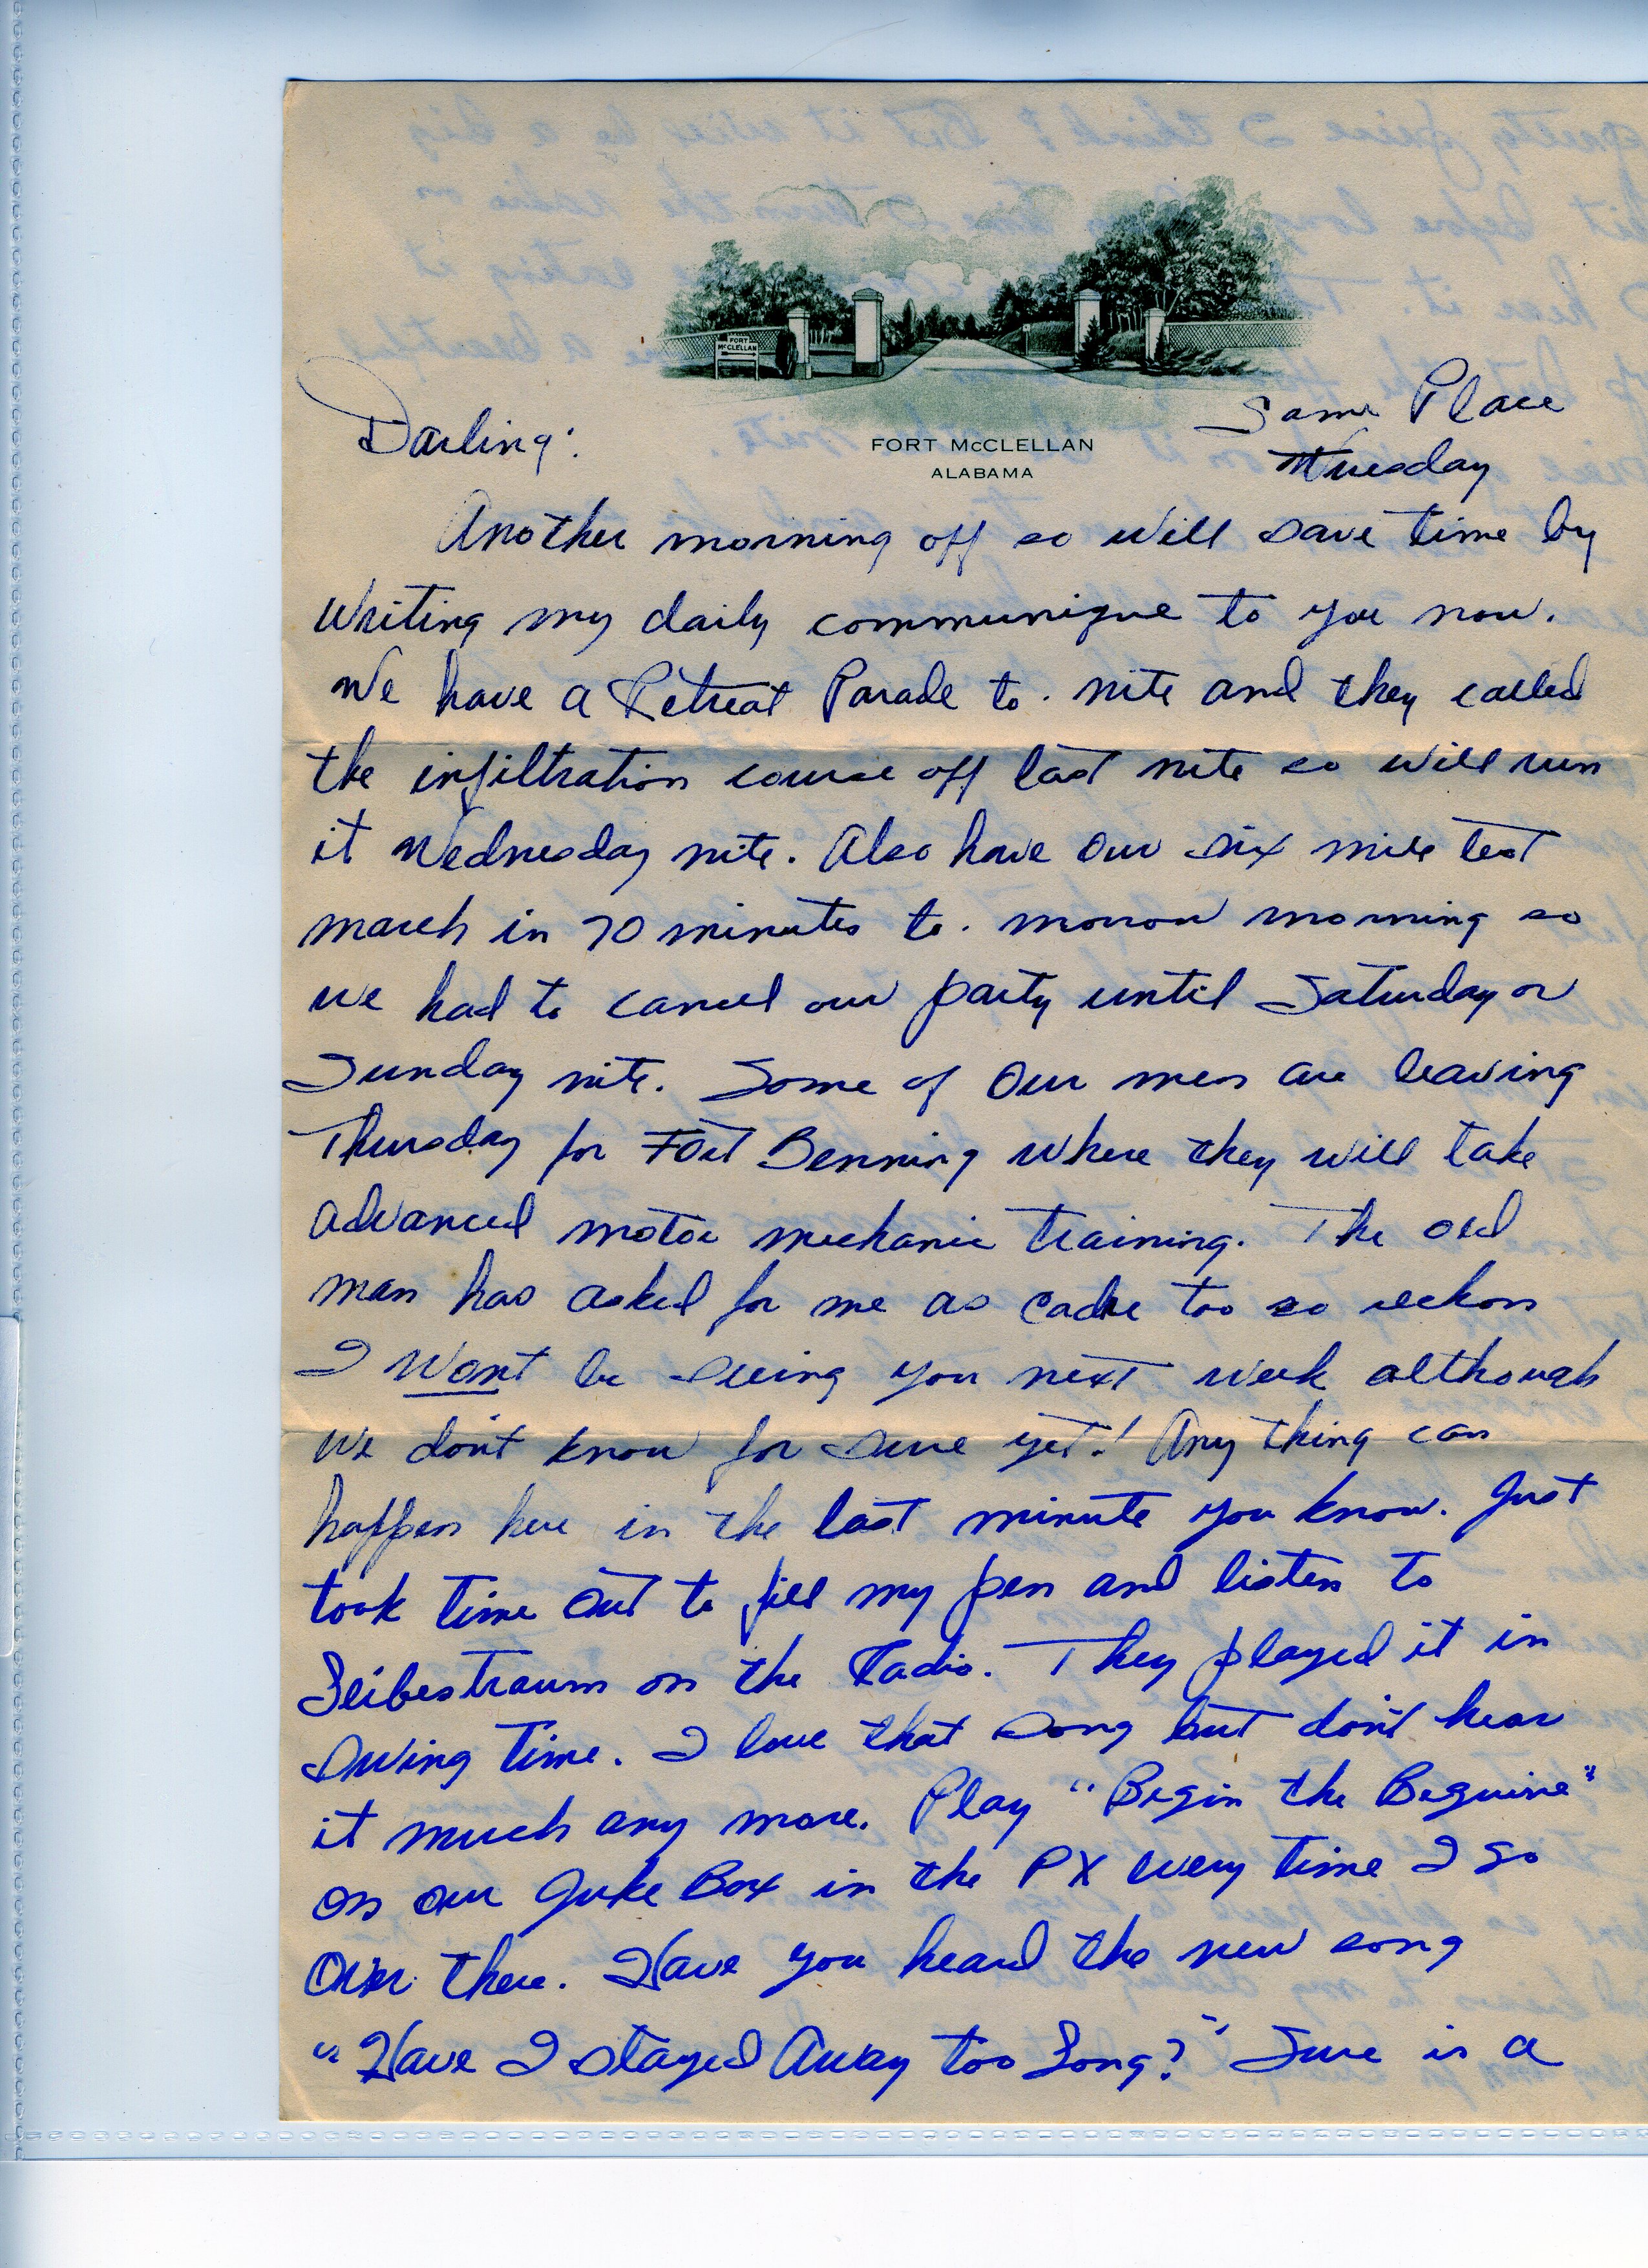 FORT
McCLELLAN
FORT McCLELLAN
ALABAMA
Same Place
Tuesday
Darling:
Another morning off so will save time by
writing my daily communique to you now.
We have a Retreat Parade to. nite and they called
the infiltration course off last nite so will run
it Wednesday nite. Also have our six mile test
march in 70 minutes to. morrow morning so
we had to cancel our party until Saturday or
Sunday nite. Some of our men are leaving
Thursday for Fort Benning where they will take
advanced motor mechanic training. The old
man has asked for me as cadre too so reckon
I wont be seeing you next week although
we don't know for sure yet! Any thing can
happen here in the last minute you know. Just
took time out to fill my pen and listen to
Leibestraum on the Radio. They played it in
swing time. I love that song but don't hear
it much any more. Play "Begin the Beguine"
on our Juke Box in the PX every time I go
over there. Have you heard the new song
"Have I stayed Away too Long?" Sure is a